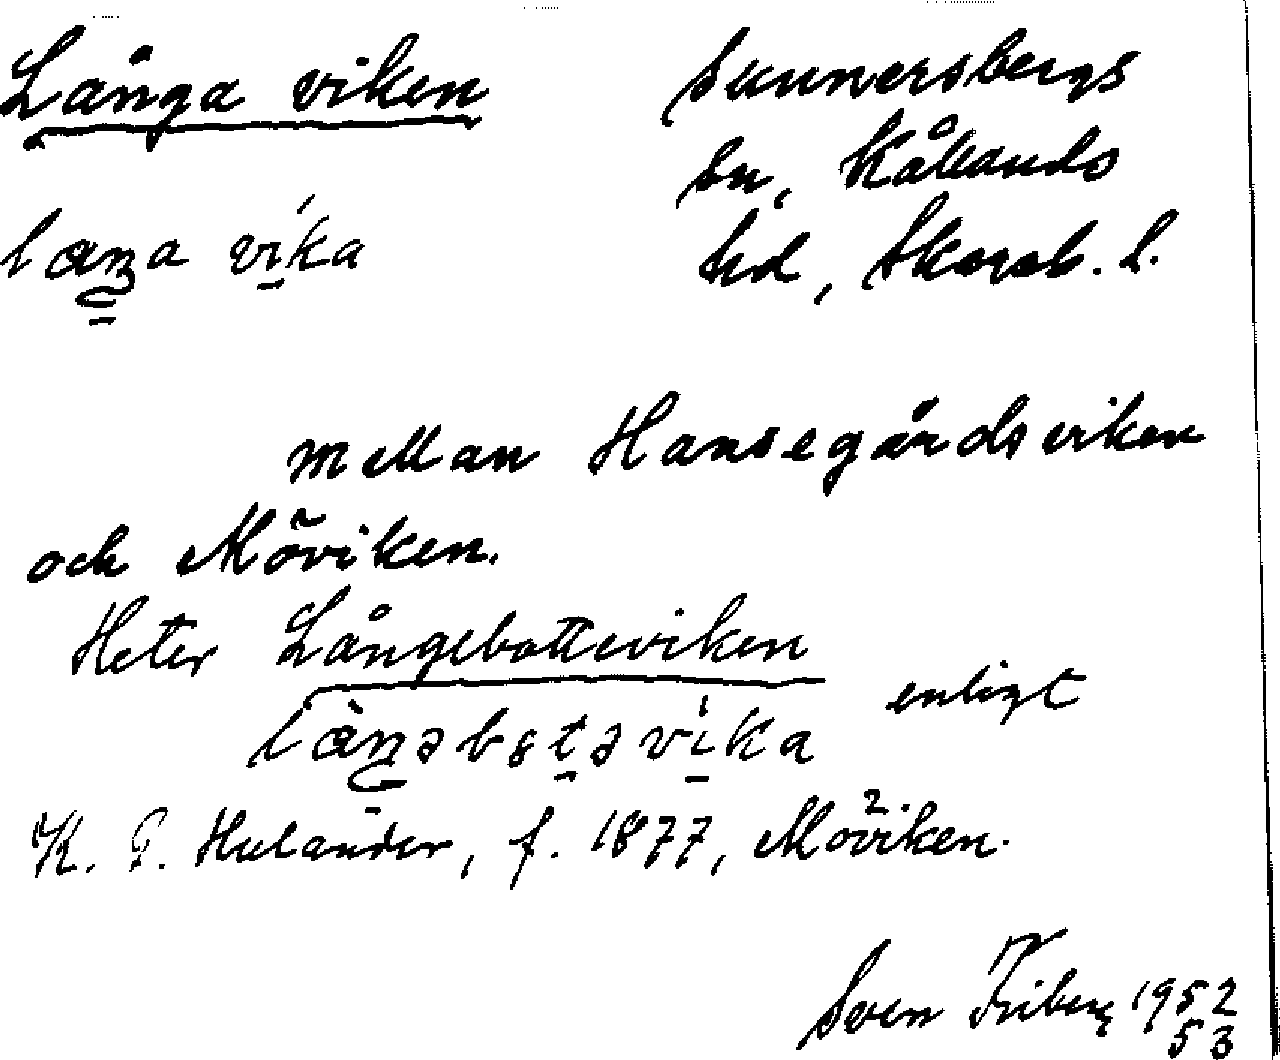 Långa viken
Sunnersbergs
sn, Kållands
hd, Skarab. l.
laŋa vika
mellan Hansegårdsviken
och Möviken.
Heter Långebotteviken
enligt
låŋəbɷtəvika
K. G. Hulander, f. 1877, Möviken.
Sven Friberg 1952
53